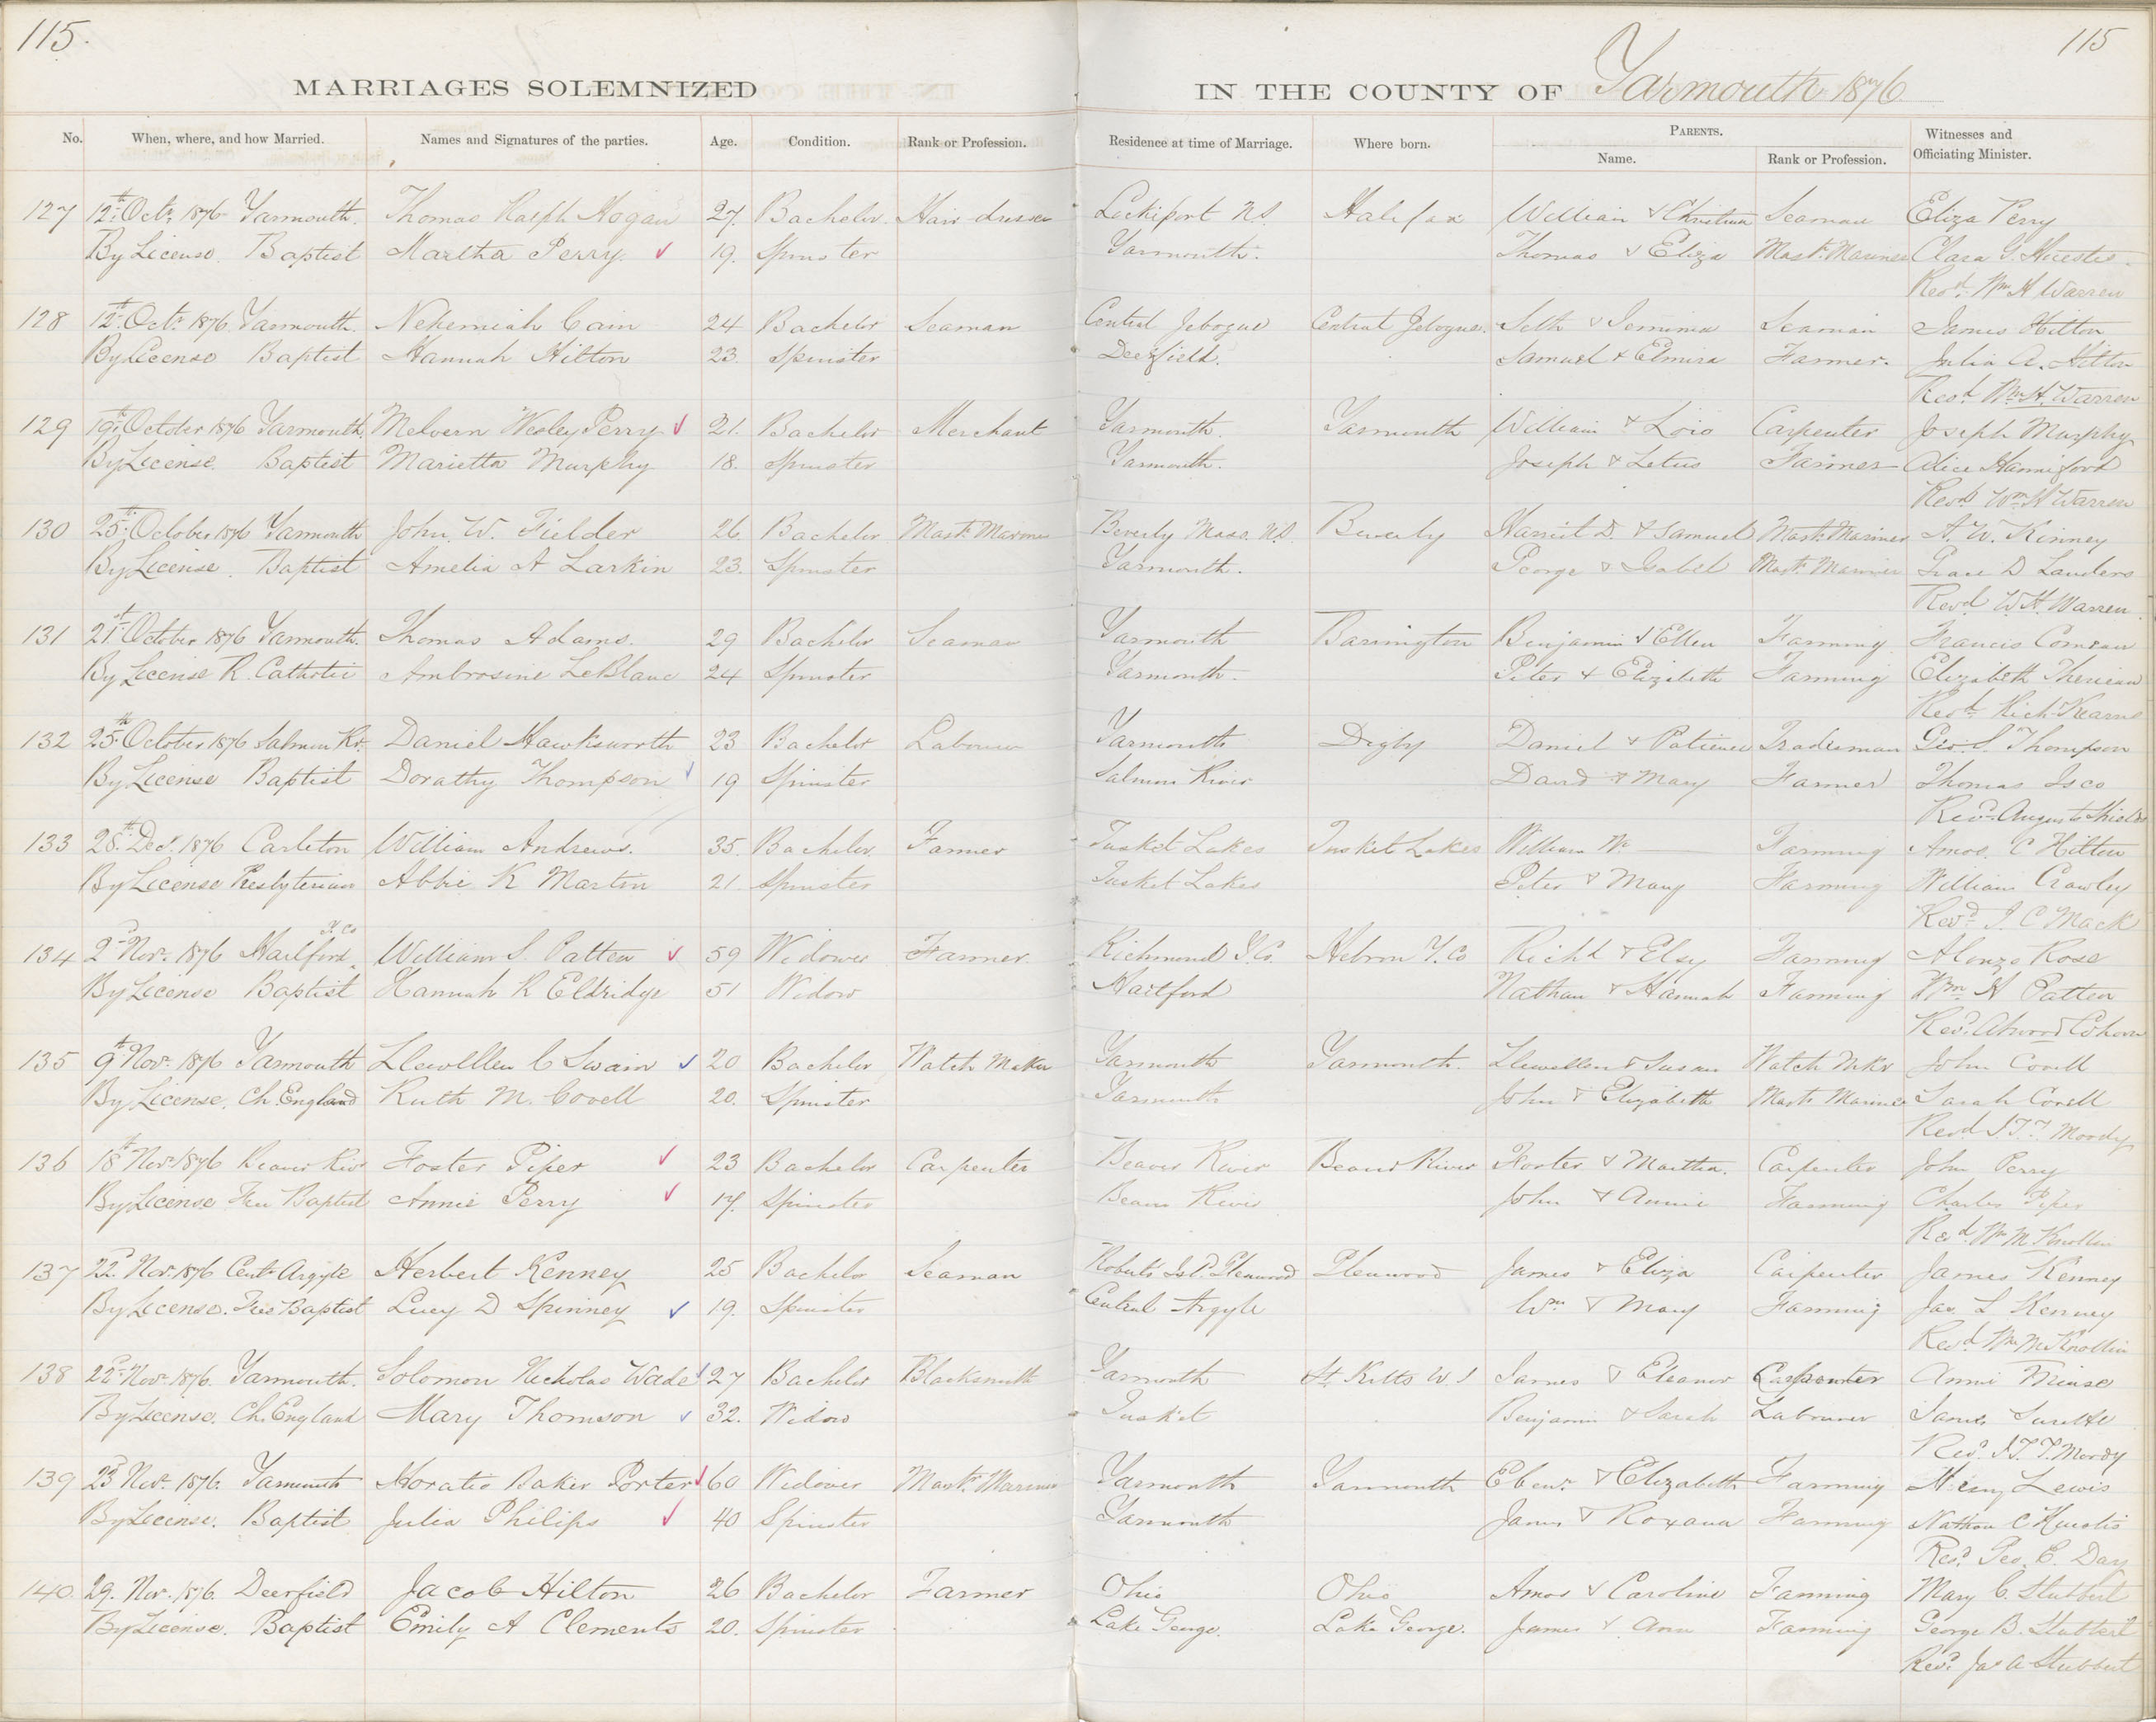 115.
115
MARRIAGES SOLEMNIZED
IN THE COUNTY OF Yarmouth 1876
No. When, where, and how Married. Names and Signatures of the parties. Age. Condition. Rank or Profession. Residence at time of Marriage. Where born. PARENTS. Name. Rank or Profession. Witnesses and Officiating Minister.
127 12th Octr. 1876 Yarmouth. Thomas Ralph Hogan 27. Bachelor. Hair dresser Lockeport N.S. Halifax William & Christina Seaman Eliza Perry
By License. Baptist Martha Perry. 19. Spinster Yarmouth. Thomas & Eliza Mastr. Mariner Clara G. Huestis.
Revd. Wm H Warren
128 12th Octr. 1876. Yarmouth. Nehemiah Cain 24 Bachelor Seaman Central Jebogue Central Jebogue. Seth & Jemima Seaman James Hilton
By License Baptist Hannah Hilton 23. Spinster Deerfield. Samuel & Elmira Farmer. Julia A. Hilton
Revd. Wm. H. Warren
129 19th October 1876 Yarmouth. Melvern Wesley Perry 21. Bachelor Merchant Yarmouth. Yarmouth William & Lois Carpenter Joseph Murphy
By License. Baptist Marietta Murphy 18. Spinster Yarmouth. Joseph & Letus Farmer Alice Hanniford
Revd Wm H Warren
130 25th October 1876 Yarmouth John W. Fielder 26. Bachelor Mastr. Mariner Beverly Mass. U.S. Beverly Harriet D. & Samuel Mastr. Mariner A. W. Kinney
By License. Baptist Amelia A Larkin 23. Spinster Yarmouth. George & Isabel Mastr. Mariner Grace D Landers
Revd W. H. Warren.
131 21st October 1876 Yarmouth. Thomas Adams. 29 Bachelor Seaman Yarmouth Barrington Benjamin & Ellen Farming Francis Comeau
By License R. Catholic Ambrosine LeBlanc 24 Spinster Yarmouth. Peter & Elizabeth Farming Elizabeth Theriau
Revd. Rich Kearns
132 25th October 1876 Salmon Rr. Daniel Hawksworth 23 Bachelor Labourer Yarmouth Digby Daniel & Patience Tradesman Geo. S. Thompson
By License Baptist Dorathy Thompson 19 Spinster Salmon River David & Mary Farmer Thomas Isco
Revd. August Shields
133 28th Decr. 1876 Carleton William Andrews. 35. Bachelor. Farmer Tusket Lakes Tusket Lakes William Farming Amos. C Hilton
By License Presbyterian Abbie K Marton 21. Spinster Tusket Lakes Peter & Mary Farming William Crawley
Revd. J. C Mack
134 2d Novr. 1876 Hartford Y. Co William S. Patten 59 Widower Farmer. Richmond Y. Co. Hebron Y. Co Richd & Elsy Farming Alonzo Rose
By License Baptist Hannah R Eldridge 51 Widow Hartford Nathan & Hannah Farming Wm. H Patten
Revd. Atwood Cohoon
135 9th Novr. 1876 Yarmouth Llewlllen C Swain 20 Bachelor Watch Maker Yarmouth Yarmouth. Llewellen & Susan Watch Mkr John Covell
By License. Ch. England Ruth M. Covell 20. Spinster Yarmouth John & Elizabeth Mastr Mariner Sarah Covell
Revd J.T.T Moody
136 18th Novr. 1876 Beaver Rivr Foster Piper 23 Bachelor Carpenter Beaver River Beaver River Foster & Martha. Carpenter John Perry
By License Free Baptist Annie Perry 17. Spinster Beaver River John & Annie Farming Charles Piper
Revd. Wm M Knollin
137 22d. Novr. 1876 Centr Argyle Herbert Kenney 25 Bachelor Seaman Roberts Isld. Glenwood Glenwood James & Eliza Carpenter James Kenney
By License. Free Baptist Lucy D Spinney 19. Spinster Central Argyle Wm & Mary Farming Jas. L Kenney
Revd Wm M. Knollin
138 22d. Novr. 1876. Yarmouth. Solomon Nicholas Wade 27 Bachelor Blacksmith Yarmouth St. Kitts W. I James & Eleanor Carpenter Annie
By License. Ch. England Mary Thomson 32. Widow Tusket Benjamin & Sarah Labourer James Surette
Revd. J. T. T. Moody
139 23d Novr. 1876. Yarmouth Horatio Baker Porter 60 Widower Mastr. Mariner Yarmouth Yarmouth Ebenr. & Elizabeth Farming Henry Lewis
By License. Baptist Julia Philips 40 Spinster Yarmouth James & Roxana Farming Nathan C Huestis
Revd. Geo. E. Day
140 29. Novr. 1876. Deerfield Jacob Hilton 26 Bachelor Farmer Ohio Ohio Amos & Caroline Farming Mary C. Stubbert
By License. Baptist Emily A Clements 20. Spinster Lake George. Lake George. James & Ann Farming George B. Stubbert
Revd. Jas A Stubbert